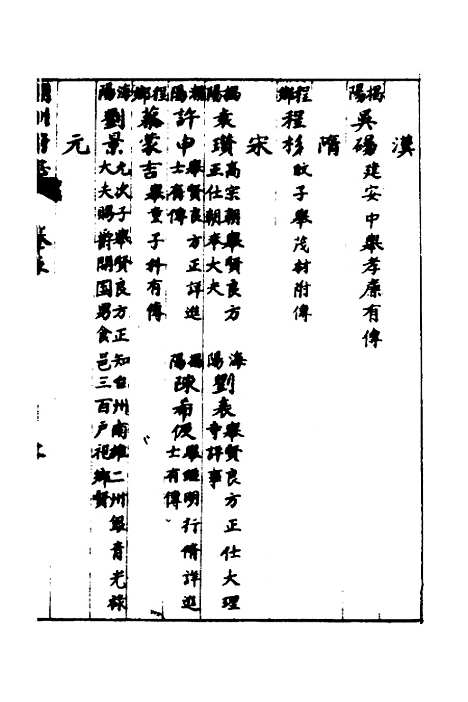 漢
揭陽 吳碭 建安中舉孝廉有傳
隋
程鄉 程杉 旼子舉茂材附傳
宋
揭陽 袁瓚 高宗朝舉賢良方正仕朝奉大夫
海陽 劉表 舉賢良方正仕大理寺評事
揭陽 許申 舉賢良方正詳進士有傳
揭陽 陳希伋 舉經明行脩詳進士有傳
程鄉 蔡蒙吉 舉童子科有傳
海陽 劉景 允次子舉賢良方正知台州南雄二州銀青光祿大夫賜爵開国男食邑三百户祀鄉賢
元